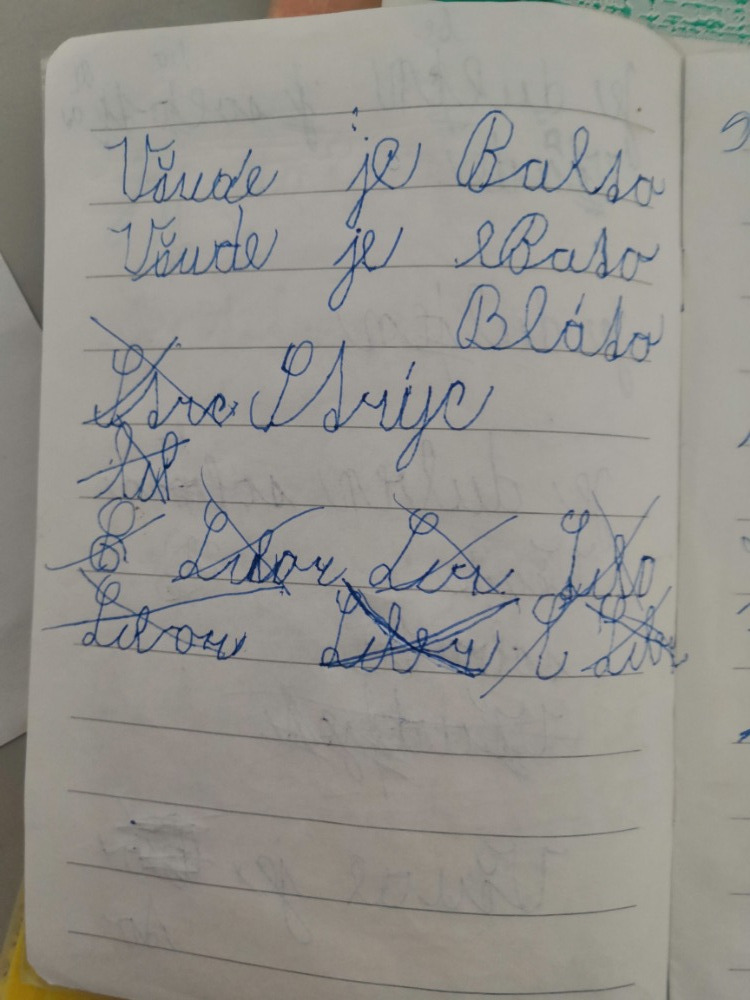 Všude je Balso
Všude je Baso
Bláto
Strc Strýc
Libor Lior Libo
Libor Libor L Libor